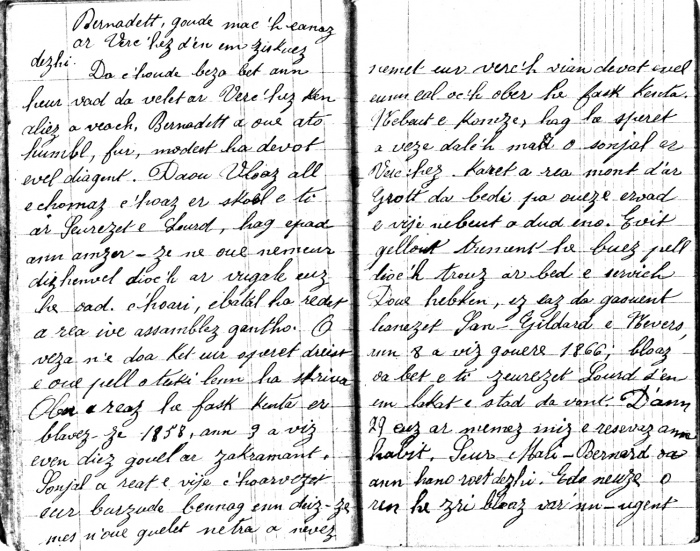 Bernadett, goude mac'h eanaz
ar Verc'hez d'en em ziskuez
dezhi.
Da c'houde beza bet ann
heur vad da velet ar Verc'hez ken
aliez a veach, Bernadett a oue ato
humbl, fur, modest ha devot
evel diagent. Daou vloaz all
e chomaz c'hoaz er skol e ti
ar Seurezet e Lourd, hag epad
ann amzer-ze ne oue nemeur
dishenvel dioc'h ar vugale euz
he oad. c'hoari, ebatal ha redet
a rea ive assamblez gantho. O
veza n'e doa ket eur speret dreist
e oue pell o teski lenn ha skriva
Ober e reaz he fask kenta er
blavez-ze 1858, ann 3 a viz
even diez gouel ar zakramant.
Sonjal a reat e vije c'hoarvezet
eur burzude bennag enn deiz-ze
mes n'oue guelet netra a nevez
nemet eur verc'h vian devot evel
eunn eal oc'h ober he fask kenta.
Nebeut e komze, hag he speret
a veze dalc'h mat o sonjal er
Verc'hez. Karet a rea mont d'ar
Grott da bedi pa oueze ervad
e vije nebeut a dud eno. Evit
gellout tremenn he buez pell
dioc'h trouz ar bed e servich
Doue hebken, ez eaz da gaouent
leanezet San-Gildard e Nevers,
unn 8 a viz gouere 1866; bloaz
oa bet e ti zeurezet Lourd d'en
em lakat e stad da vont. D'ann
29 euz ar memez miz e resevaz ann
habit. Seur Mari-Bernard oa
ann hano roet dezhi. Edo neuze o
ren he zri bloaz var'nn-ugent